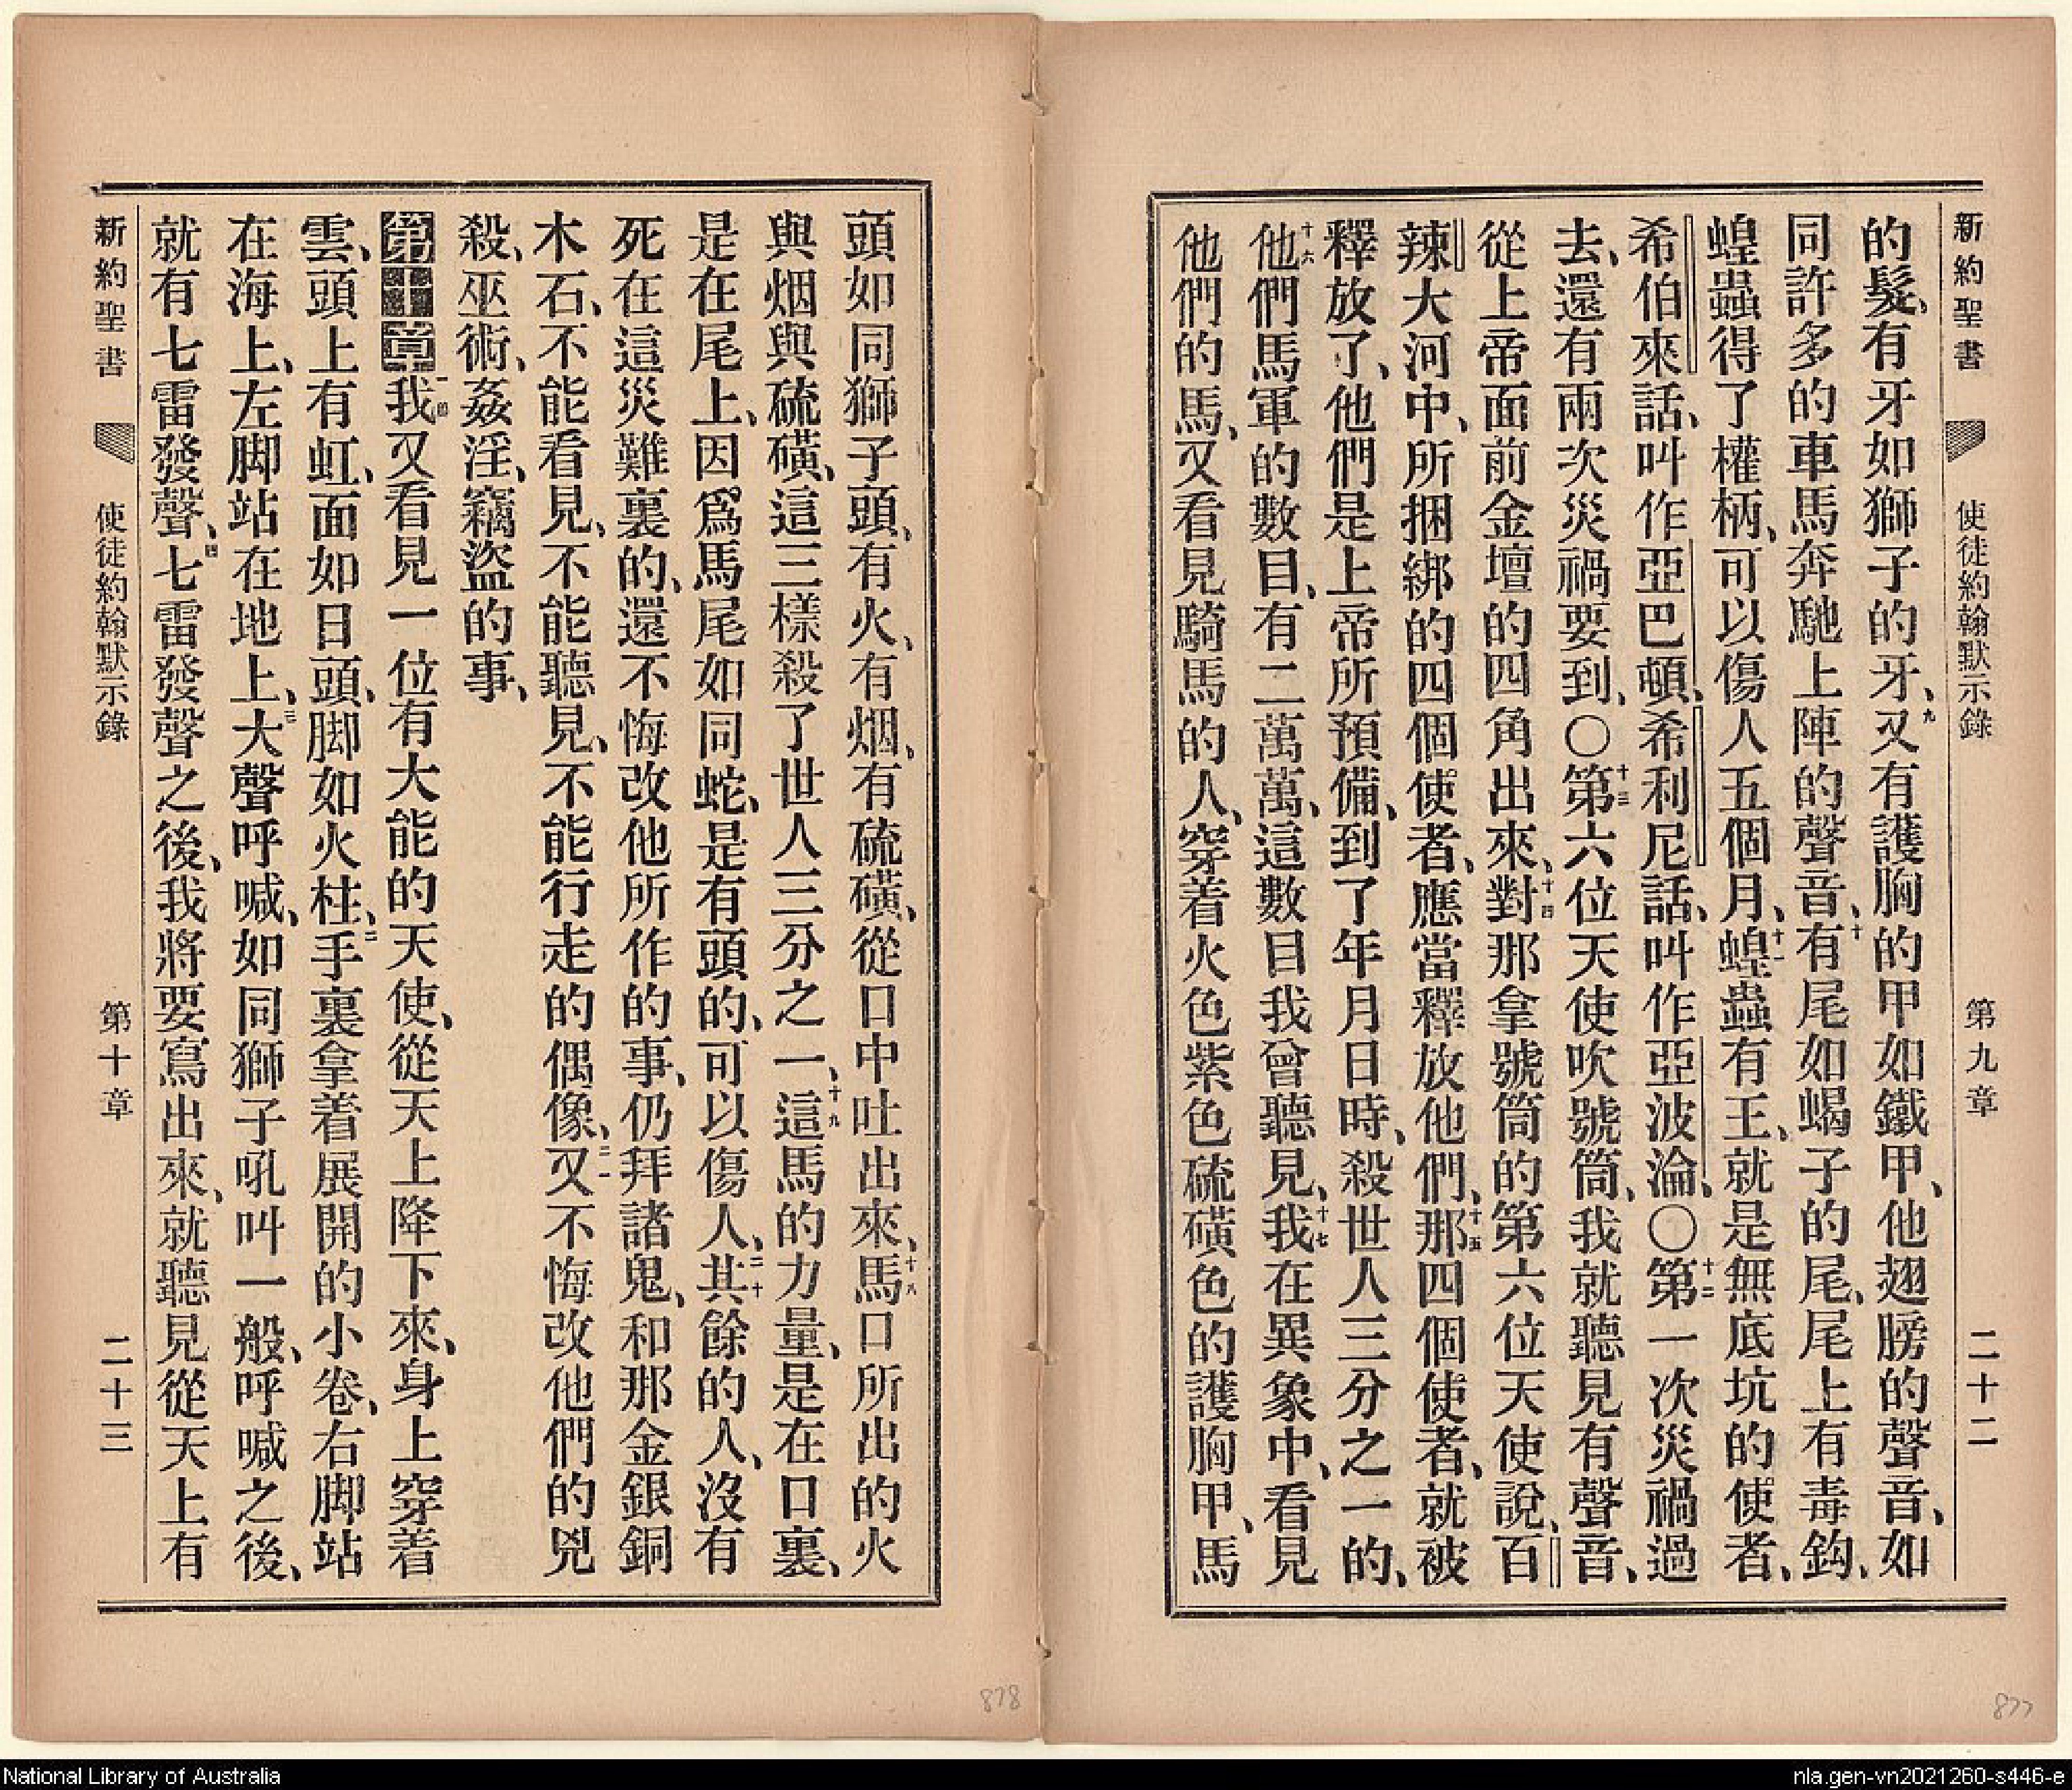 新約聖書 使徒約翰默示錄 第九章 二十二
的髮、有牙如獅子的牙、九又有護胸的甲如鐵甲、他翅膀的聲音、如
同許多的車馬奔馳上陣的聲音、十有尾如蝎子的尾、尾上有毒鈎、
蝗蟲得了權柄、可以傷人五個月、十一蝗蟲有王、就是無底坑的使者、
希伯來話、叫作亞巴頓、希利尼話、叫作亞波淪、〇十二第一次災禍過
去、還有兩次災禍要到、〇十三第六位天使吹號筒、我就聽見有聲音、
從上帝面前金壇的四角出來、十四對那拿號筒的第六位天使說、百
辣大河中、所捆綁的四個使者、應當釋放他們、十五那四個使者、就被
釋放了、他們是上帝所預備、到了年月日時、殺世人三分之一的、
十六他們馬軍的數目、有二萬萬、這數目我曾聽見、十七我在異象中、看見
他們的馬、又看見騎馬的人、穿着火色紫色硫磺色的護胸甲、馬
頭如同獅子頭、有火、有烟、有硫磺、從口中吐出來、十八馬口所出的火
與烟與硫磺、這三樣殺了世人三分之一、十九這馬的力量、是在口裏、
是在尾上、因爲馬尾如同蛇、是有頭的、可以傷人、二十其餘的人、沒有
死在這災難裏的、還不悔改他所作的事、仍拜諸鬼、和那金銀銅
木石、不能看見、不能聽見、不能行走的偶像、二一又不悔改他們的兇
殺、巫術、姦淫、竊盜的事、
第十章一節我又看見一位有大能的天使、從天上降下來、身上穿着
雲、頭上有虹、面如日頭、脚如火柱、二手裏拿着展開的小卷、右脚站
在海上、左脚站在地上、三大聲呼喊、如同獅子吼叫一般、呼喊之後、
就有七雷發聲、四七雷發聲之後、我將要寫出來、就聽見從天上有
新約聖書 使徒約翰默示錄 第十章 二十三
878
877
National Library of Australia
nla.gen-vn2021260-s446-e